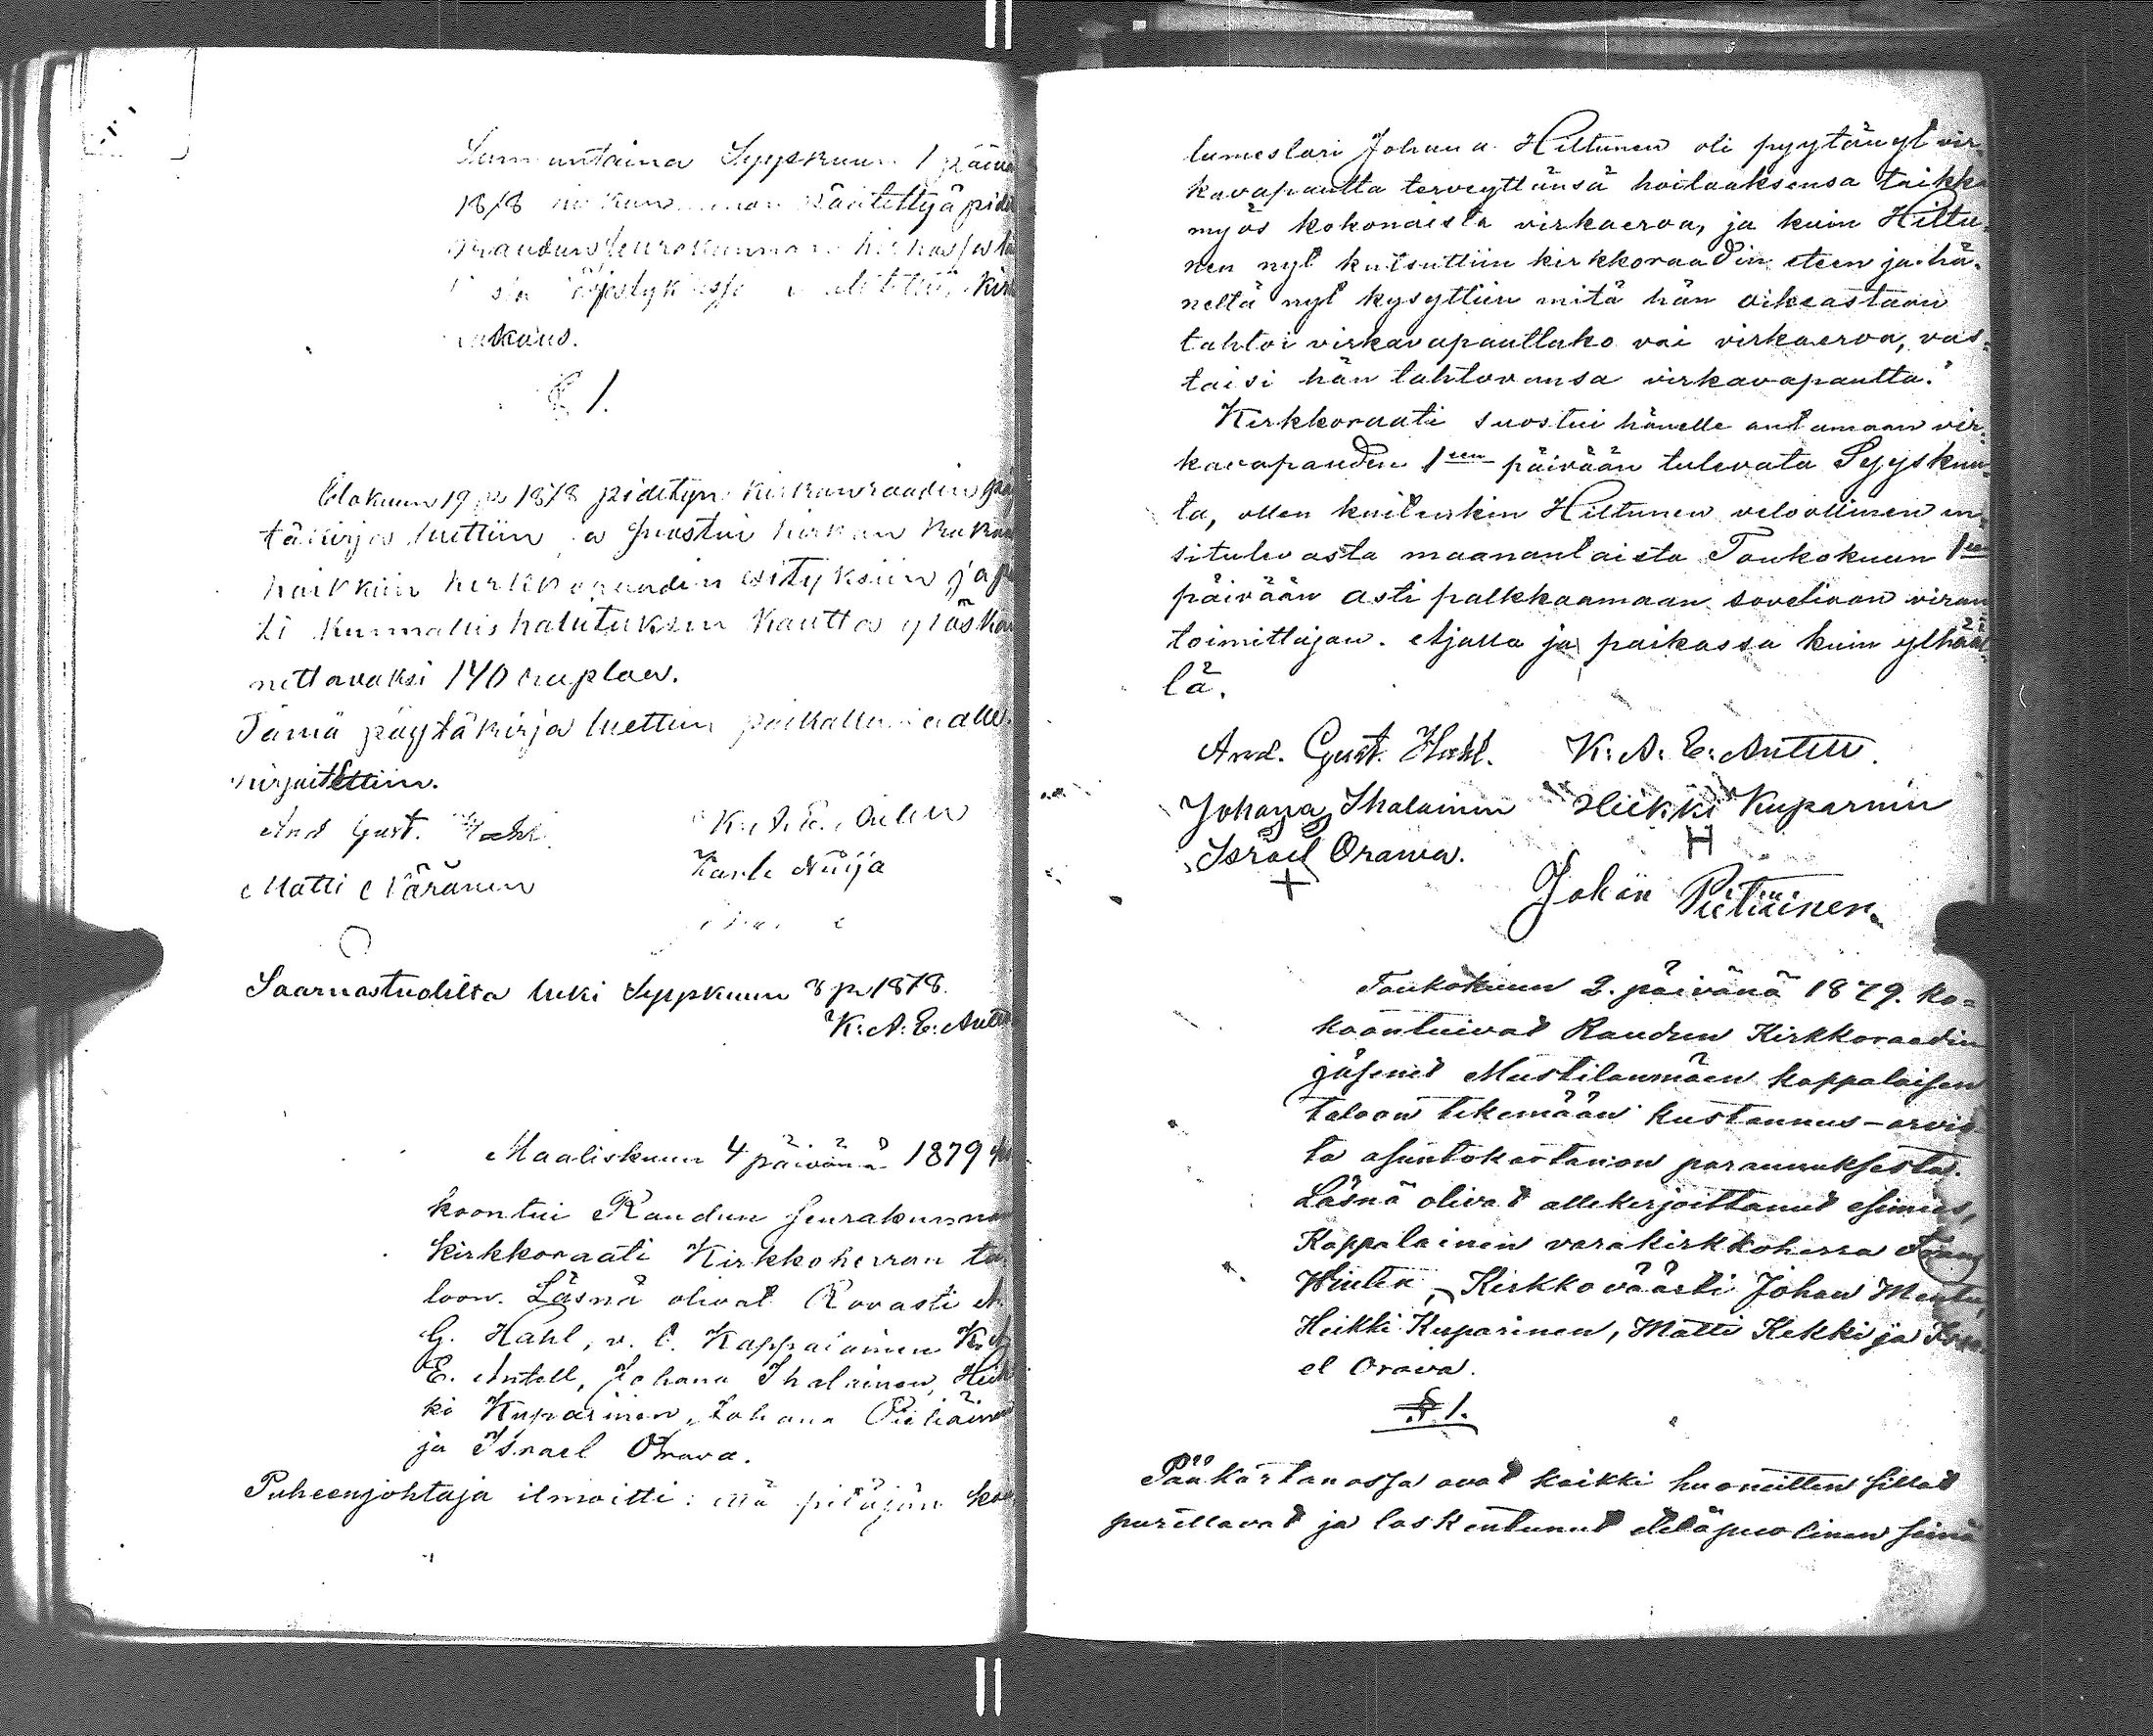 Sunnuntaina Syyskuun 1 päivä
1878
Raudun seurakunnan
kokous.
§ 1.
Elokuun 19 p. 1878 pidetyn kirkonraadin
täkirja luettiin ja suostui
kaikkiin kirkkoraadin esityksiin ja
kunnallishalituksen kautta
nettavaksi 140 ruplaa.
Tämä päytäkirja luettiin paikalla ja alle
kirjoitettiin.
And Gust. Hahl. K. A. E. Antell
Matti Näränen Paavo Nuija
Saarnastuolista luki Syyskuun 8 p. 1878.
K: A: E: Antell
Maaliskuun 4 päivänä 1879
koontui Raudun seurakunnan
kirkkoraati Kirkkoherran ta
loon. Läsnä olivat Rovasti A.
G. Hahl, v. t. Kappalainen K. A.
E. Antell, Johana Ihalainen, Heik
ki Kuparinen, Johana Pietiäinen
ja Israel Orava.
Puheenjohtaja ilmoitti: että pitäjän
lumeslari Johan a. Hiltunen oli pyytänyt vir-
kavapautta terveyttänsä hoitaaksensa taikka
myös kokonaista virkaeroa, ja kuin Hiltu-
nen nyt kutsuttiin kirkkoraadin eteen ja hä-
neltä nyt kysyttiin mitä hän oikeastaan
tahtoi virkavapauttako vai virkaeroa, vas-
taisi hän tahtovansa virkavapautta.
Kirkkoraati suostui hänelle antamaan vir-
kavapauden 1een päivään tulevata Syyskuu-
ta, ollen kuitenkin Hiltunen velvollinen en-
situlevasta maanantaista Toukokuun 1een
päivään asti palkkaamaan soveliaan viran
toimittajan. Ajassa ja paikassa kuin ylhääl-
lä.
And. Gust. Hahl. K: A: E: Antell.
Johana Ihalainen Heikki Kuparinin
Israel Orawa. H
+
Johan Pietiäinen.
Toukokuun 2. päivänä 1879. ko-
koontuivat Raudun Kirkkoraadin
jäsenet Mustilanmäen kappalaisen
taloon tekemään kustannus-arvio
ta asuntokartanon parannuksesta.
Läsnä olivat allekirjoittanut esimies,
Kappalainen varakirkkoherra
Kirkkoväärti Johan
Heikki Kuparinen, Matti Kekki ja Isra-
el Orava.
§ 1.
Pääkartanossa ovat kaikki huoneitten sillat
purettavat ja laskentunut eteläpuolinen seinä